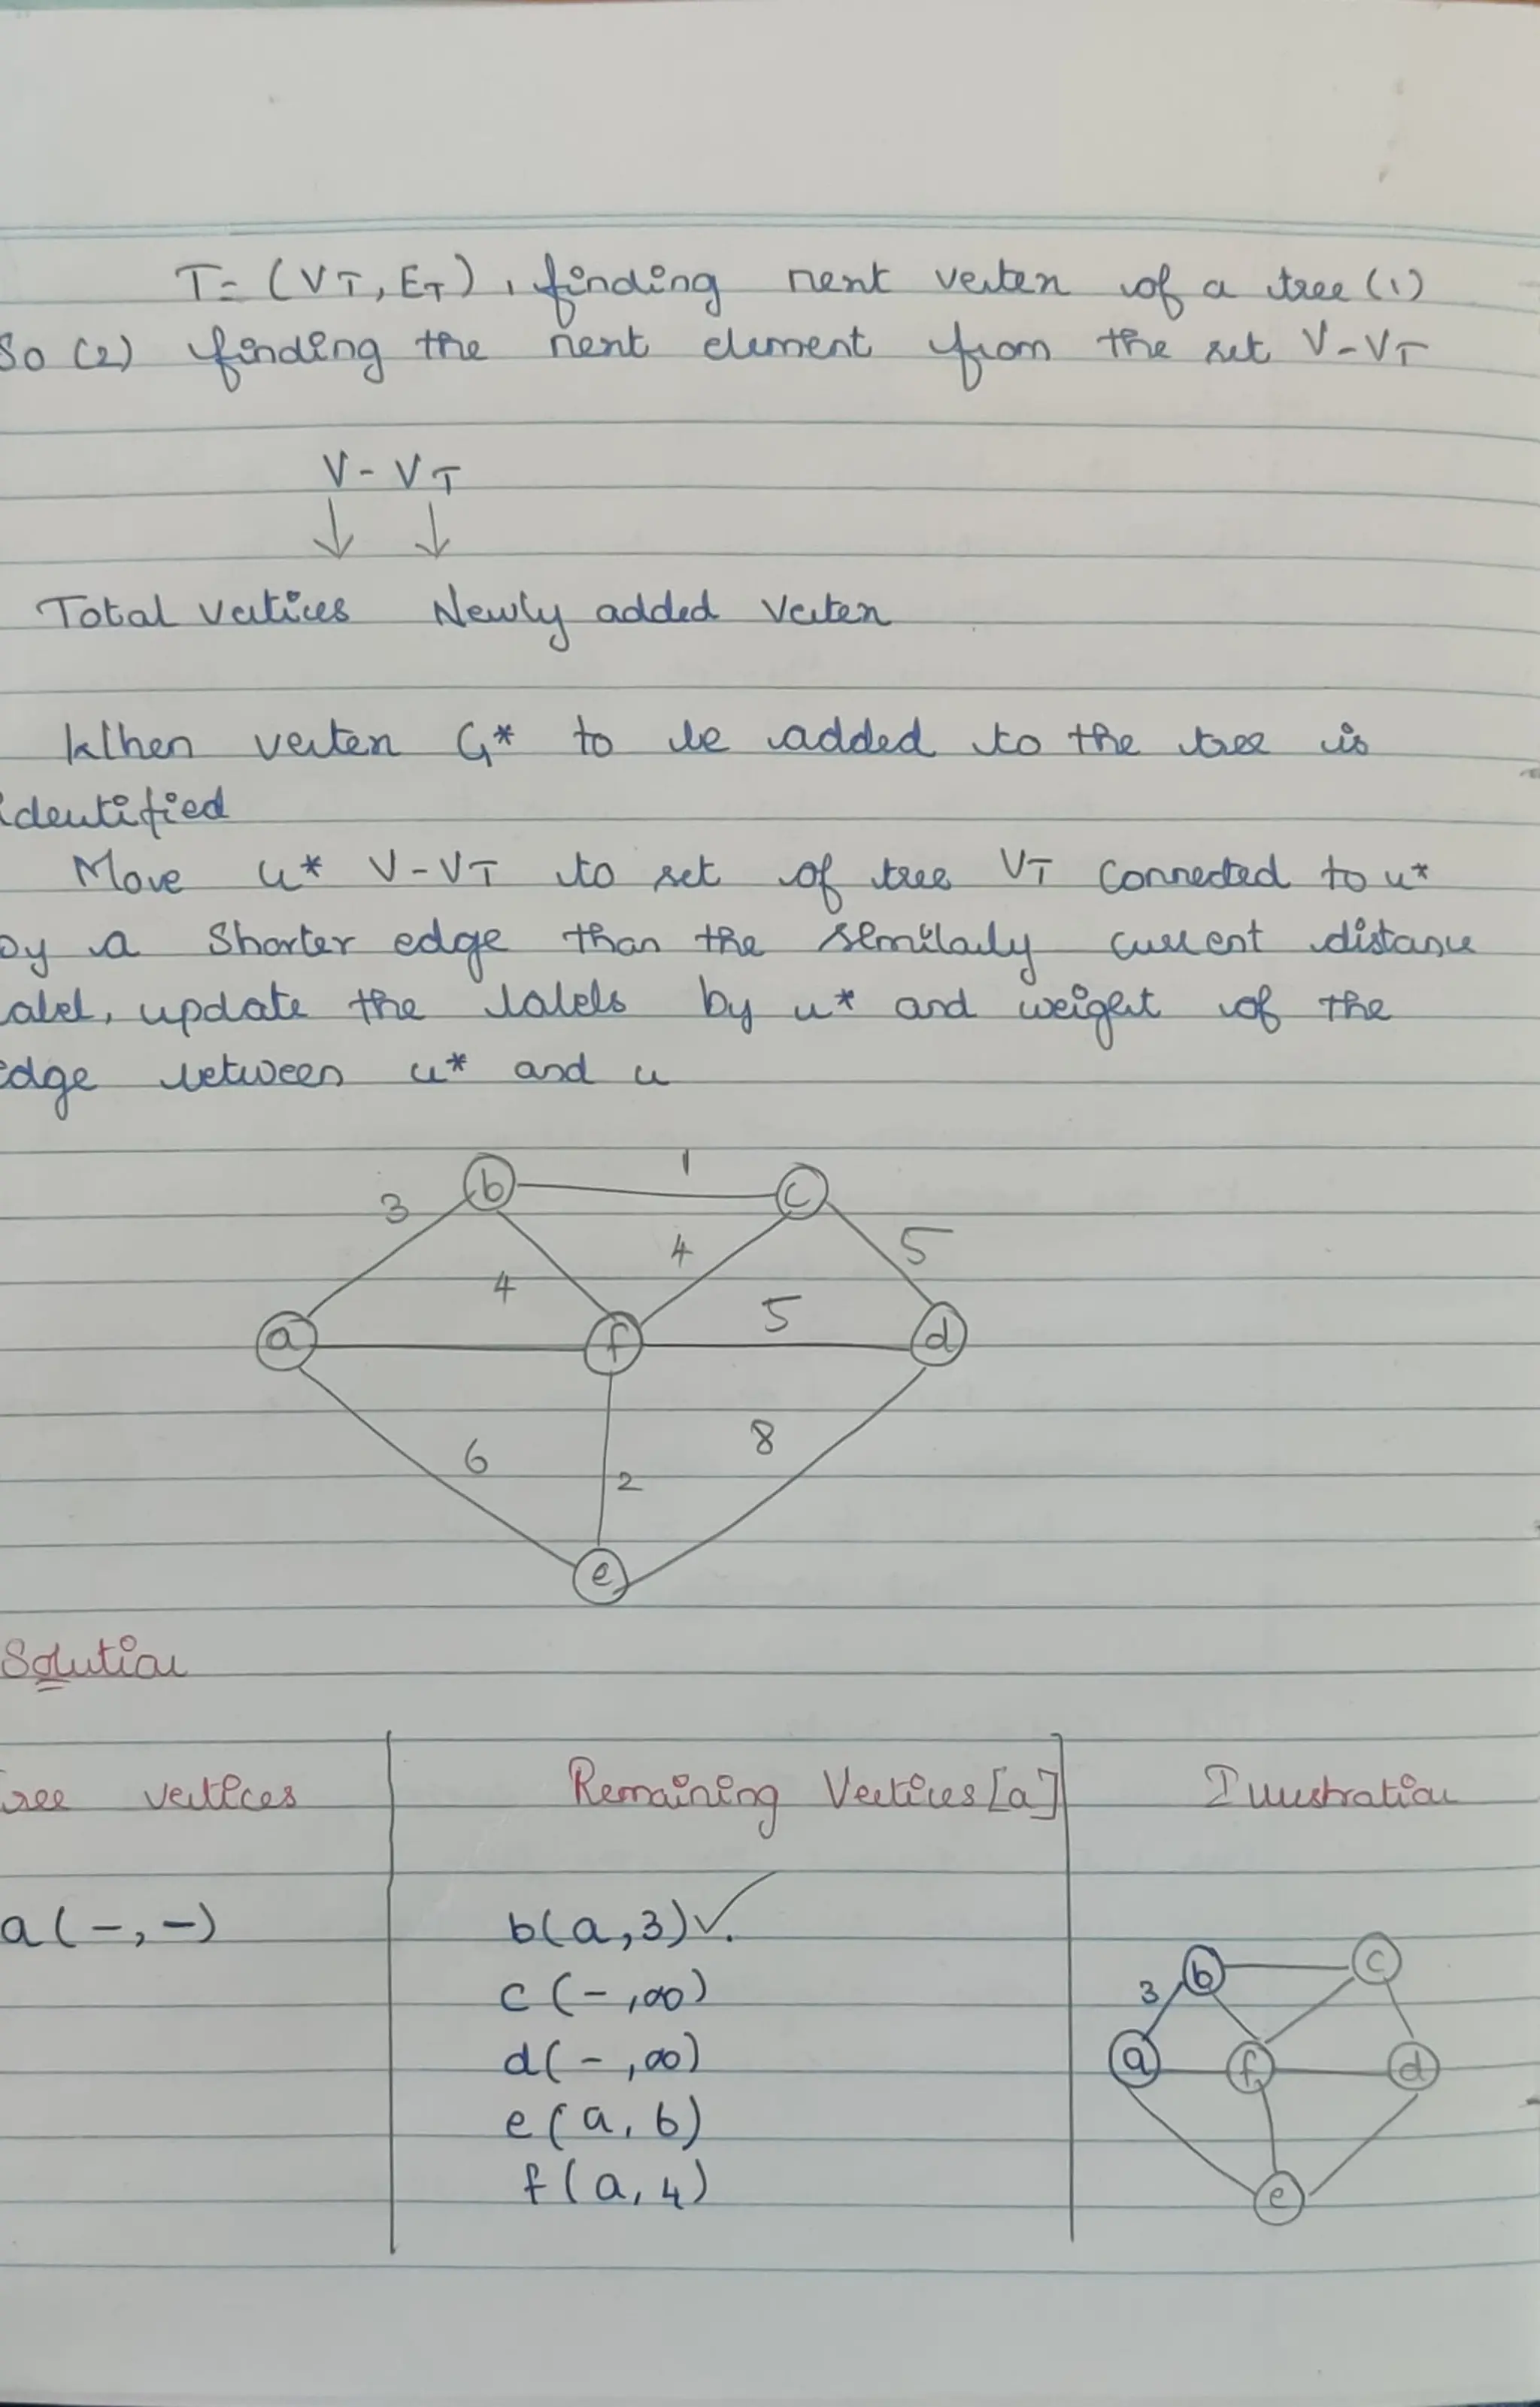 T= (VT, ET), finding next vertex of a tree (1)
So (2) finding the next element from the set V-VT
V - VT
↓ ↓
Total vertices Newly added vertex
When vertex G* to be added to the tree is
identified
Move u* V-VT to set of tree VT connected to u*
by a shorter edge than the semilarly current distance
label, update the labels by u* and weight of the
edge between u* and u
b 1 c
3 4 5
4 5
a f d
6 8
2
e
Solution
Tree vertices Remaining Vertices [a] Illustration
a(-,-) b(a,3) ✓.
c(-,∞)
d(-,∞)
e(a,6)
f(a,4)
b c
3
a f d
e